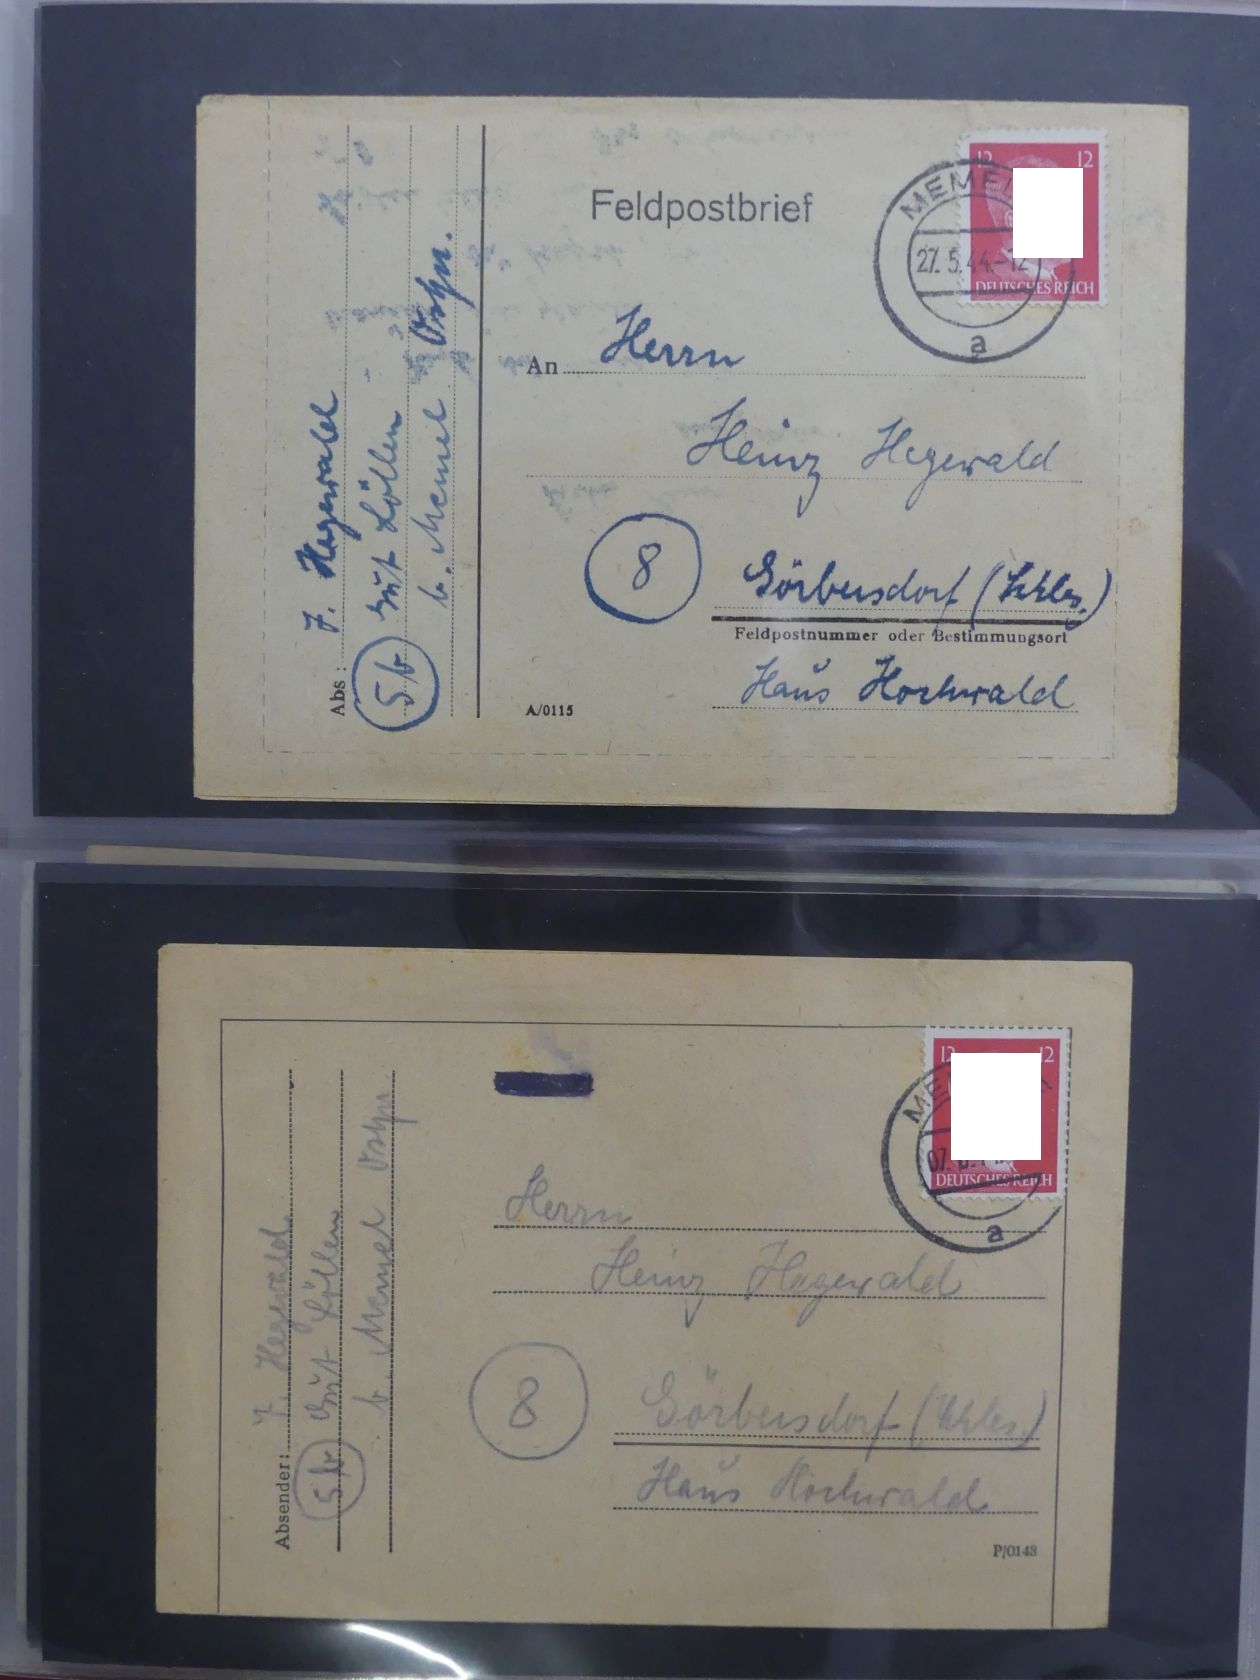 Feldpostbrief
12 12
DEUTSCHES REICH
MEMEL
27.5.44.-12
a
An Herrn
Heinz Hegewald
8
Görbersdorf (Schles.)
Feldpostnummer oder Bestimmungsort
Haus Hochwald
A/0115
Abs: F. Hegewald
5b Gut Löllen
b. Memel Ostpr.
12 12
DEUTSCHES REICH
a
Herrn
Heinz Hegewald
8
Görbersdorf (Schles.)
Haus Hochwald
P/0143
Absender: F. Hegewald
5b Gut Löllen
b. Memel Ostpr